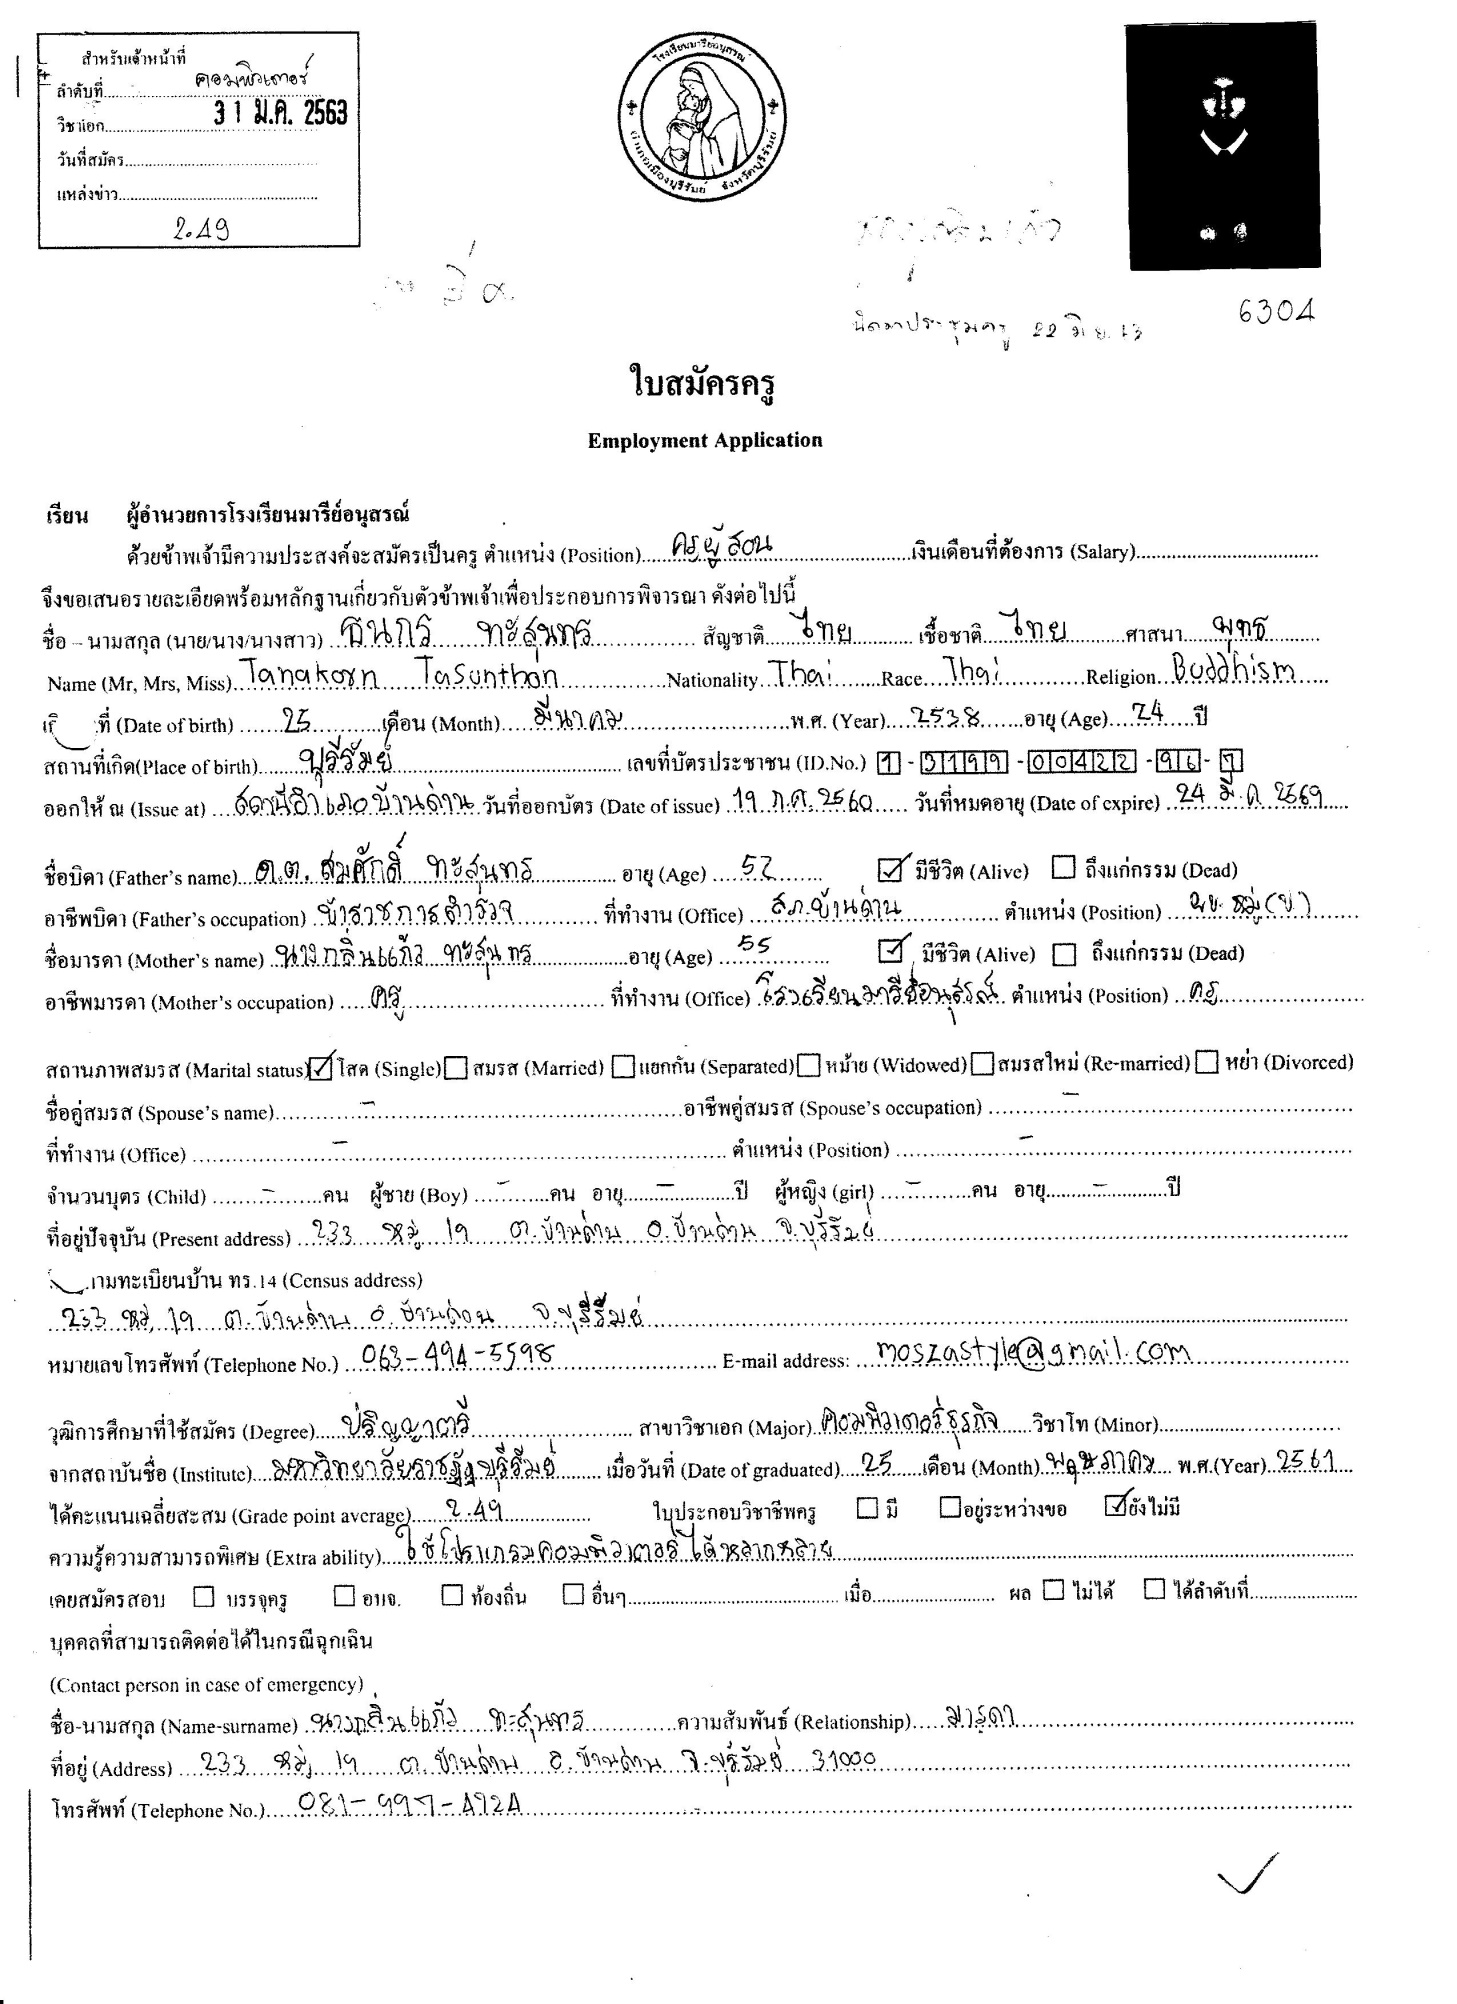 สำหรับเจ้าหน้าที่
ลำดับที่ คอมพิวเตอร์
วิชาเอก 31 ม.ค. 2563
วันที่สมัคร
แหล่งข่าว
2.49
โรงเรียนมารีย์อนุสรณ์
อำเภอเมืองบุรีรัมย์ จังหวัดบุรีรัมย์
6304
ใบสมัครครู
Employment Application
เรียน ผู้อำนวยการโรงเรียนมารีย์อนุสรณ์
ด้วยข้าพเจ้ามีความประสงค์จะสมัครเป็นครู ตำแหน่ง (Position) ครูผู้สอน เงินเดือนที่ต้องการ (Salary)
จึงขอเสนอรายละเอียดพร้อมหลักฐานเกี่ยวกับตัวข้าพเจ้าเพื่อประกอบการพิจารณา ดังต่อไปนี้
ชื่อ – นามสกุล (นาย/นาง/นางสาว) ธนกร ทะสุนทร สัญชาติ ไทย เชื้อชาติ ไทย ศาสนา พุทธ
Name (Mr, Mrs, Miss) Tanakorn Tasunthon Nationality Thai Race Thai Religion Buddhism
ที่ (Date of birth) 25 เดือน (Month) มีนาคม พ.ศ. (Year) 2538 อายุ (Age) 24 ปี
สถานที่เกิด(Place of birth) บุรีรัมย์ เลขที่บัตรประชาชน (ID.No.) 1 - 3199 - 00422 - 96 - 9
ออกให้ ณ (Issue at) บ้านด่าน วันที่ออกบัตร (Date of issue) 19 ก.ค. 2560 วันที่หมดอายุ (Date of expire) 24 มี.ค 2569
ชื่อบิดา (Father's name) ด.ต. สมศักดิ์ ทะสุนทร อายุ (Age) 52 มีชีวิต (Alive) ถึงแก่กรรม (Dead)
อาชีพบิดา (Father's occupation) ข้าราชการตำรวจ ที่ทำงาน (Office) สภ.บ้านด่าน ตำแหน่ง (Position) ผบ.หมู่(ป)
ชื่อมารดา (Mother's name) นางกลิ่นแก้ว ทะสุนทร อายุ (Age) 55 มีชีวิต (Alive) ถึงแก่กรรม (Dead)
อาชีพมารดา (Mother's occupation) ครู ที่ทำงาน (Office) โรงเรียนมารีย์อนุสรณ์ ตำแหน่ง (Position) ครู
สถานภาพสมรส (Marital status) โสด (Single) สมรส (Married) แยกกัน (Separated) หม้าย (Widowed) สมรสใหม่ (Re-married) หย่า (Divorced)
ชื่อคู่สมรส (Spouse's name) – อาชีพคู่สมรส (Spouse's occupation) –
ที่ทำงาน (Office) – ตำแหน่ง (Position) –
จำนวนบุตร (Child) – คน ผู้ชาย (Boy) – คน อายุ – ปี ผู้หญิง (girl) – คน อายุ – ปี
ที่อยู่ปัจจุบัน (Present address) 233 หมู่ 19 ต.บ้านด่าน อ.บ้านด่าน จ.บุรีรัมย์
ามทะเบียนบ้าน ทร.14 (Census address)
233 หมู่ 19 ต.บ้านด่าน อ.บ้านด่าน จ.บุรีรัมย์
หมายเลขโทรศัพท์ (Telephone No.) 063-494-5598 E-mail address: moszastyle@gmail.com
วุฒิการศึกษาที่ใช้สมัคร (Degree) ปริญญาตรี สาขาวิชาเอก (Major) คอมพิวเตอร์ธุรกิจ วิชาโท (Minor)
จากสถาบันชื่อ (Institute) มหาวิทยาลัยราชภัฏบุรีรัมย์ เมื่อวันที่ (Date of graduated) 25 เดือน (Month) พฤษภาคม พ.ศ.(Year) 2561
ได้คะแนนเฉลี่ยสะสม (Grade point average) 2.49 ใบประกอบวิชาชีพครู มี อยู่ระหว่างขอ ยังไม่มี
ความรู้ความสามารถพิเศษ (Extra ability) ใช้โปรแกรมคอมพิวเตอร์ได้หลากหลาย
เคยสมัครสอบ บรรจุครู อบจ. ท้องถิ่น อื่นๆ เมื่อ ผล ไม่ได้ ได้ลำดับที่
บุคคลที่สามารถติดต่อได้ในกรณีฉุกเฉิน
(Contact person in case of emergency)
ชื่อ-นามสกุล (Name-surname) นางกลิ่นแก้ว ทะสุนทร ความสัมพันธ์ (Relationship) มารดา
ที่อยู่ (Address) 233 หมู่ 19 ต.บ้านด่าน อ.บ้านด่าน จ.บุรีรัมย์ 31000
โทรศัพท์ (Telephone No.) 081-997-4724